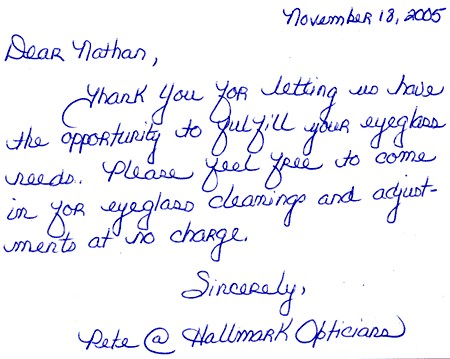 November 18, 2005
Dear Nathan,
Thank you for letting us have
the opportunity to fulfill your eyeglass
needs. Please feel free to come
in for eyeglass cleanings and adjust-
ments at no charge.
Sincerely,
Pete @ Hallmark Opticians